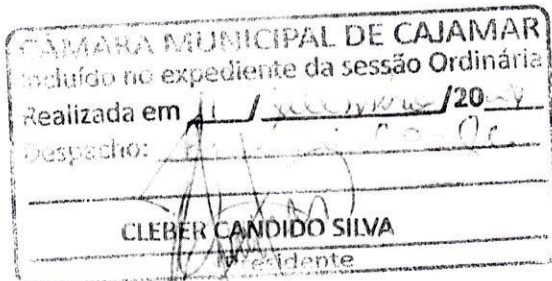 CÂMARA MUNICIPAL DE CAJAMAR
Incluído no expediente da sessão Ordinária
Realizada em 11 / /20
Despacho:
CLEBER CANDIDO SILVA
Presidente